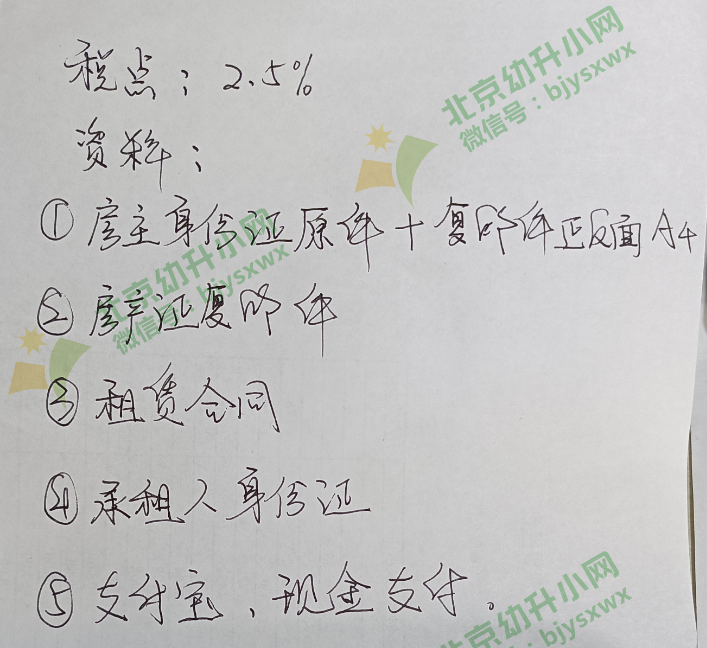 北京幼升小网
微信号：bjysxwx
税点：2.5%
资料：
①房主身份证原件+复印件正反面A4
北京幼升小网
微信号：bjysxwx
②房产证复印件
③租赁合同
④承租人身份证
⑤支付宝、现金支付。
北京幼升小网
bjysxwx